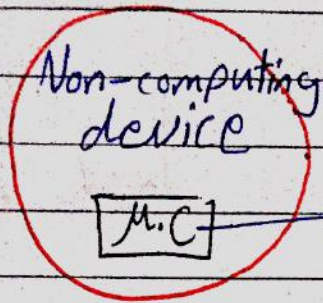 Non-computing
device
μ.C